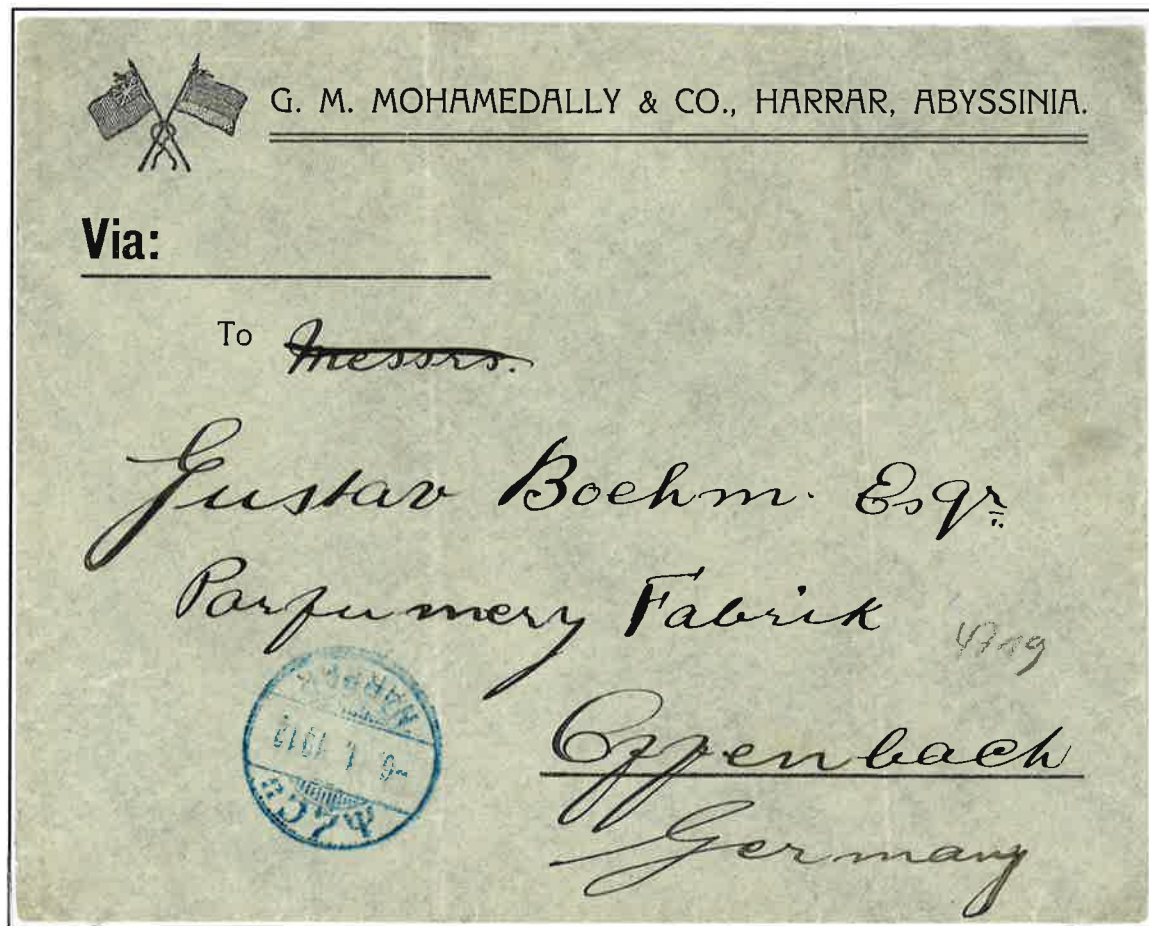 G. M. MOHAMEDALLY & CO., HARRAR, ABYSSINIA.
Via:
To Messrs.
Gustav Boehm. Esqr.
Parfumery Fabrik
Offenbach
Germany
HARRAR
-6. 1. 1912
ሐረር፡